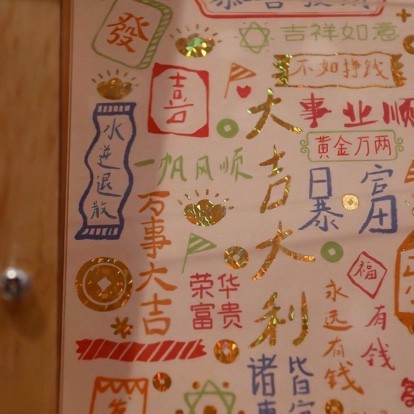 恭喜發財
發
吉祥如意
不如挣钱
喜
大吉大利
事业顺
黄金万两
水逆退散
一帆风顺
暴富
万事大吉
福
荣华
富贵
永远有钱
有钱
诸事
皆宜